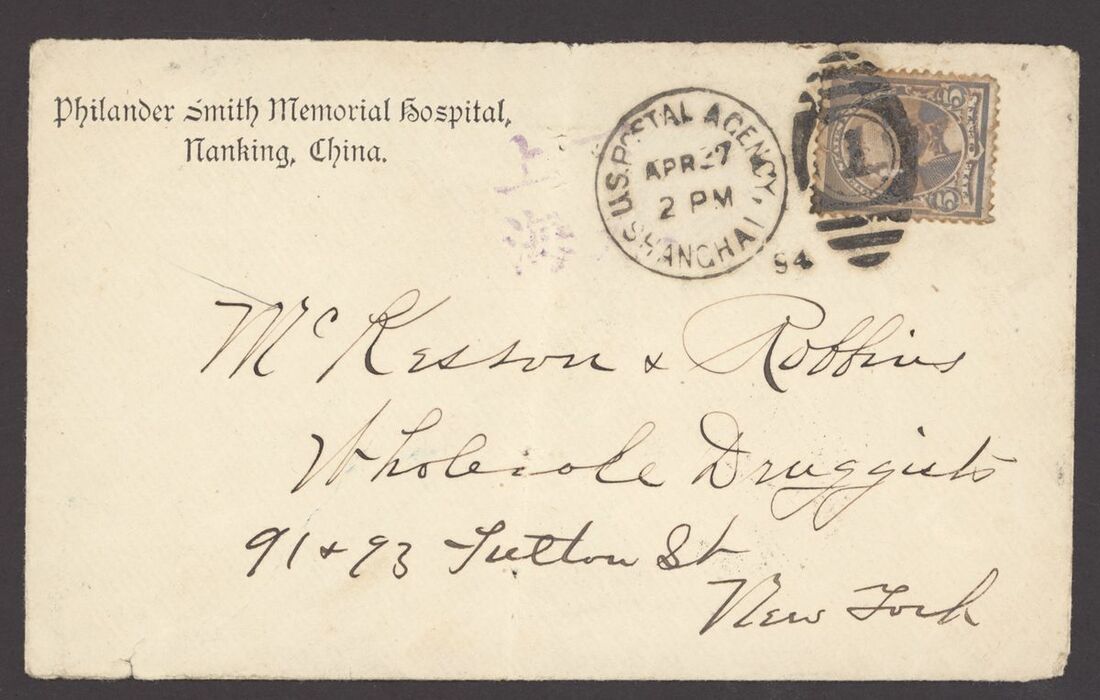 Philander Smith Memorial Hospital,
Nanking, China.
上
海
U.S. POSTAL AGENCY,
APR 27
2 PM
SHANGHAI
94
1
5 5
McKesson & Robbins
Wholesale Druggists
91 & 93 Fulton St
New York